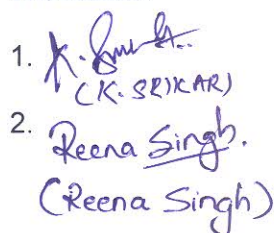 1.
(K. SRIKAR)
2.
Reena Singh.
(Reena Singh)